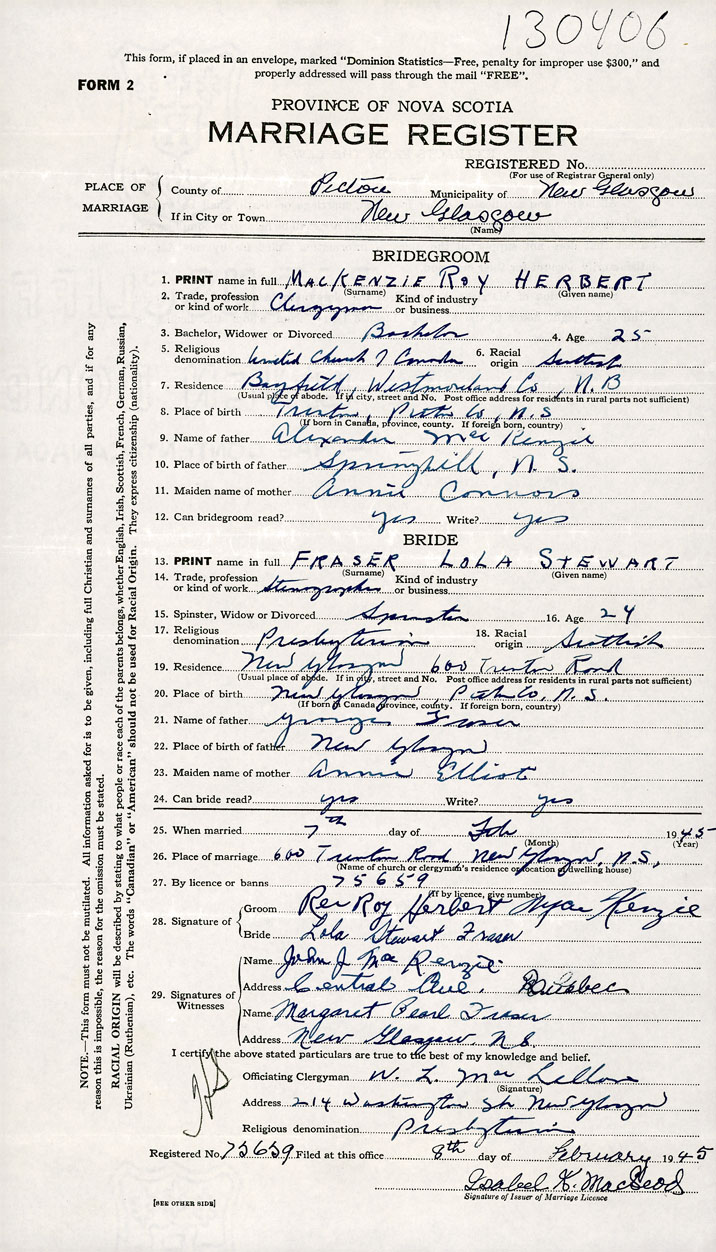 130406
This form, if placed in an envelope, marked "Dominion Statistics—Free, penalty for improper use $300," and
properly addressed will pass through the mail "FREE".
FORM 2
PROVINCE OF NOVA SCOTIA
MARRIAGE REGISTER
REGISTERED No.
(For use of Registrar General only)
PLACE OF MARRIAGE
County of Pictou Municipality of New Glasgow
If in City or Town New Glasgow
(Name)
BRIDEGROOM
1. PRINT name in full MACKENZIE ROY HERBERT
(Surname) (Given name)
2. Trade, profession or kind of work Clergyman Kind of industry or business
3. Bachelor, Widower or Divorced Bachelor 4. Age 25
5. Religious denomination United Church of Canada 6. Racial origin Scottish
7. Residence Bayfield, Westmoreland Co, N.B
(Usual place of abode. If in city, street and No. Post office address for residents in rural parts not sufficient)
8. Place of birth Trenton, Pictou Co, N.S
(If born in Canada, province, county. If foreign born, country)
9. Name of father Alexander MacKenzie
10. Place of birth of father Springhill, N.S.
11. Maiden name of mother Annie Connors
12. Can bridegroom read? yes Write? yes
BRIDE
13. PRINT name in full FRASER LOLA STEWART
(Surname) (Given name)
14. Trade, profession or kind of work Stenographer Kind of industry or business
15. Spinster, Widow or Divorced Spinster 16. Age 24
17. Religious denomination Presbyterian 18. Racial origin Scottish
19. Residence New Glasgow 600 Trenton Road
(Usual place of abode. If in city, street and No. Post office address for residents in rural parts not sufficient)
20. Place of birth New Glasgow, Pict Co, N.S.
(If born in Canada province, county. If foreign born, country)
21. Name of father George Fraser
22. Place of birth of father New Glasgow
23. Maiden name of mother Annie Elliot
24. Can bride read? yes Write? yes
25. When married 7th day of Feb 1945
(Month) (Year)
26. Place of marriage 600 Trenton Road New Glasgow, N.S.,
(Name of church or clergyman's residence or location of dwelling house)
27. By licence or banns 75659
(If by licence, give number)
28. Signature of
Groom Rev Roy Herbert MacKenzie
Bride Lola Stewart Fraser
29. Signatures of Witnesses
Name John J MacKenzie
Address Central Ave,
Name Margaret Pearl Fraser
Address New Glasgow, N.S.
I certify the above stated particulars are true to the best of my knowledge and belief.
Officiating Clergyman W. L. MacLellan
(Signature)
Address 214 Washington St. New Glasgow
Religious denomination Presbyterian
Registered No. 75659 Filed at this office 8th day of February 1945
Isabel K. MacLeod
Signature of Issuer of Marriage Licence
[SEE OTHER SIDE]
NOTE.—This form must not be mutilated. All information asked for is to be given, including full Christian and surnames of all parties, and if for any
reason this is impossible, the reason for the omission must be stated.
RACIAL ORIGIN will be described by stating to what people or race each of the parents belongs, whether English, Irish, Scottish, French, German, Russian,
Ukrainian (Ruthenian), etc. The words "Canadian" or "American" should not be used for Racial Origin. They express citizenship (nationality).